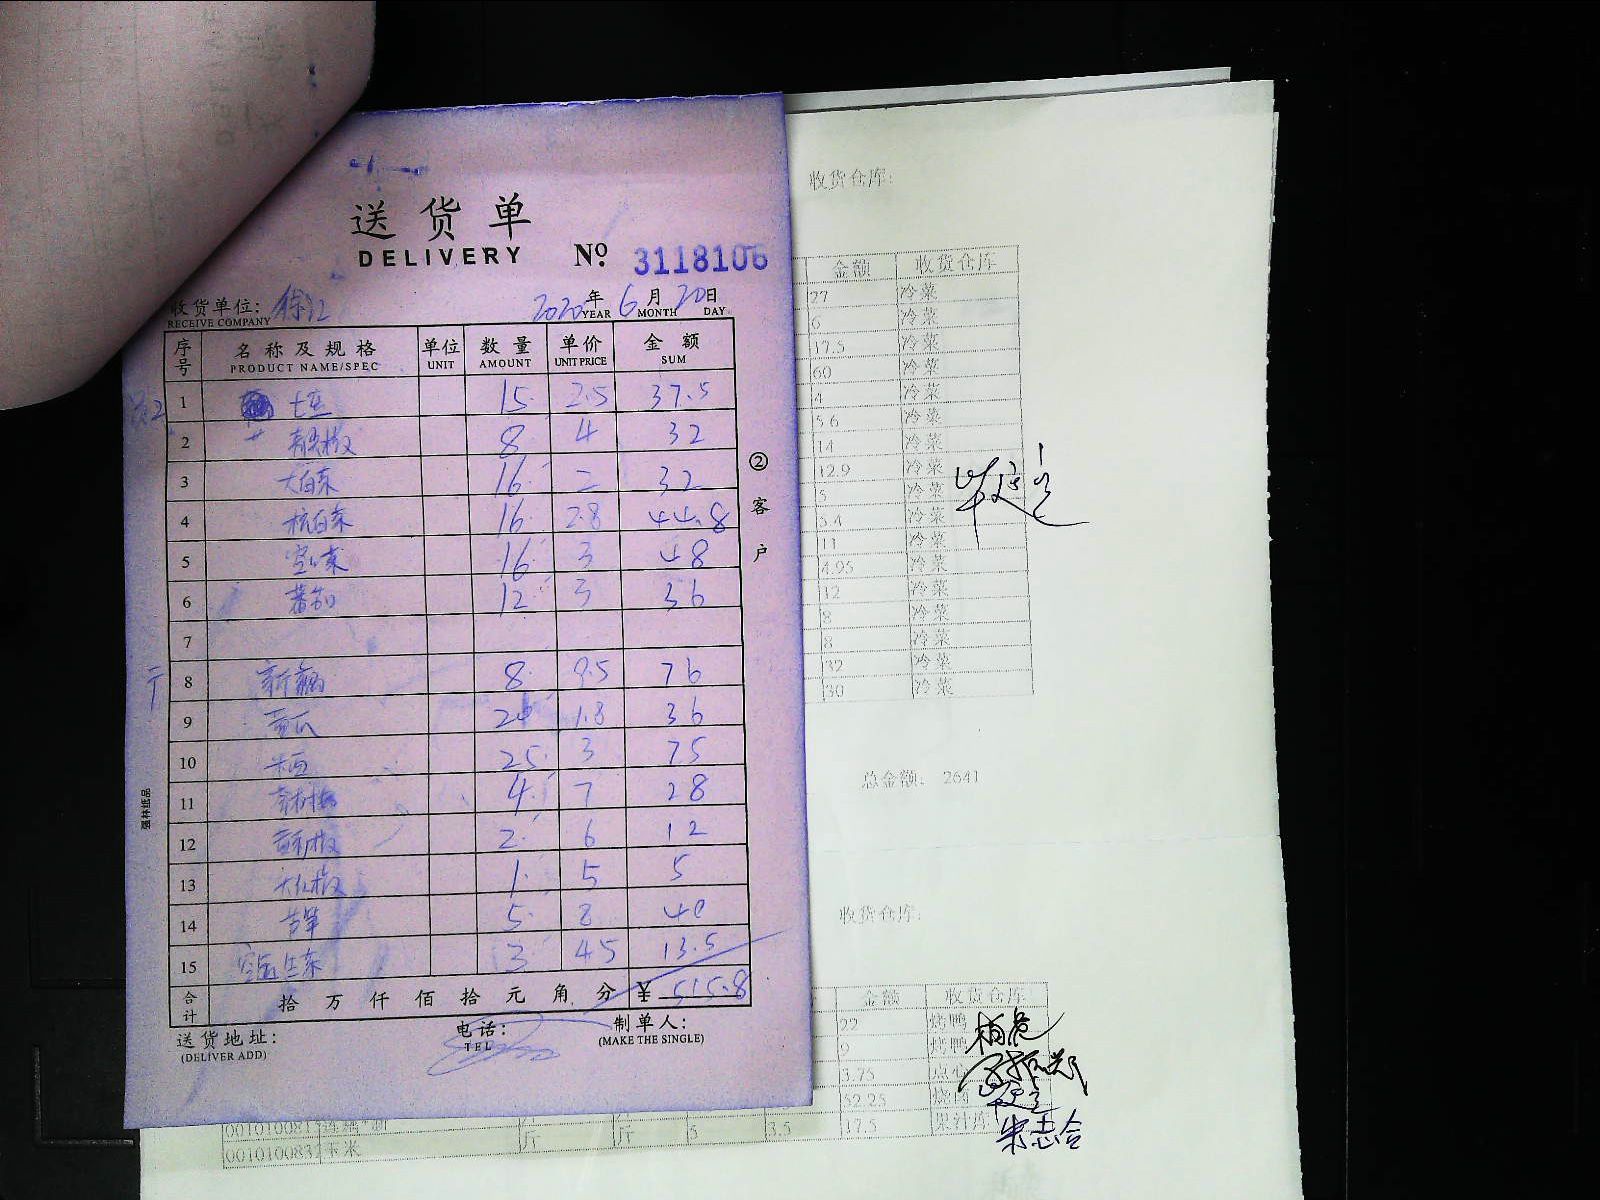 送货单
DELIVERY № 3118106
收货单位: 徐汇 2020年 6月 20日
RECEIVE COMPANY YEAR MONTH DAY
序号 名称及规格 单位 数量 单价 金额
PRODUCT NAME/SPEC UNIT AMOUNT UNIT PRICE SUM
1 土豆 15 2.5 37.5
2 8 4 32
3 大白菜 16 二 32
4 杭白菜 16 2.8 44.8
5 空心菜 16 3 48
6 12 3 36
7
8 8 9.5 76
9 黄瓜 20 1.8 36
10 25 3 75
11 4 7 28
12 2 6 12
13 大红椒 1 5 5
14 芦笋 5 8 40
15 生菜 3 4.5 13.5
合计 拾 万 仟 佰 拾 元 角 分 ¥ 515.8
送货地址: 电话: 制单人:
(DELIVER ADD) TEL (MAKE THE SINGLE)
②客户
强林纸品
收货仓库:
金额 收货仓库
27 冷菜
6 冷菜
17.5 冷菜
60 冷菜
4 冷菜
5.6 冷菜
14 冷菜
12.9 冷菜
5 冷菜
5.4 冷菜
11 冷菜
4.95 冷菜
12 冷菜
8 冷菜
8 冷菜
32 冷菜
30 冷菜
总金额: 2641
收货仓库:
金额 收货仓库
22 烤鸭
9 烤鸭
3.75 点心
52.25 烧
斤 斤 5 3.5 17.5 果汁库
001010083 玉米